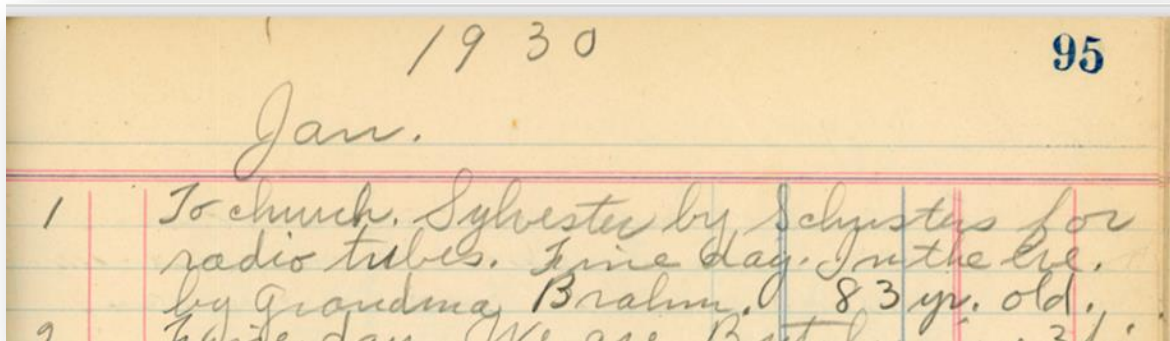 1930
95
Jan.
1 To church. Sylvester by Schusters for
radio tubes. Fine day. In the eve.
by Grandma Brahm. 83 yr. old.
2 day. We are